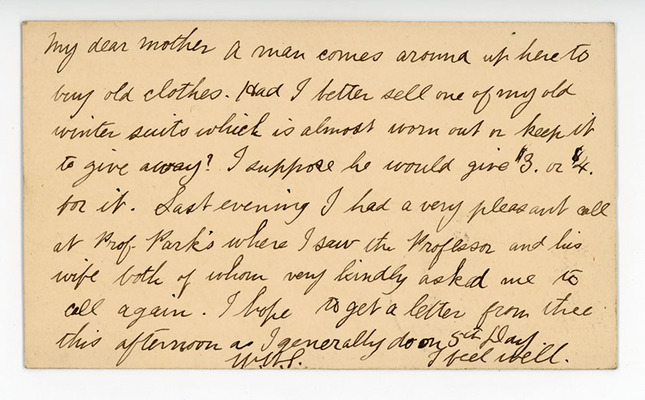 My dear mother A man comes around up here to
buy old clothes. Had I better sell one of my old
winter suits which is almost worn out or keep it
to give away? I suppose he would give $3. or $4.
for it. Last evening I had a very pleasant call
at Prof. Park's where I saw the Professor and his
wife both of whom very kindly asked me to
call again. I hope to get a letter from thee
this afternoon as I generally do on 5th Day.
I feel well.